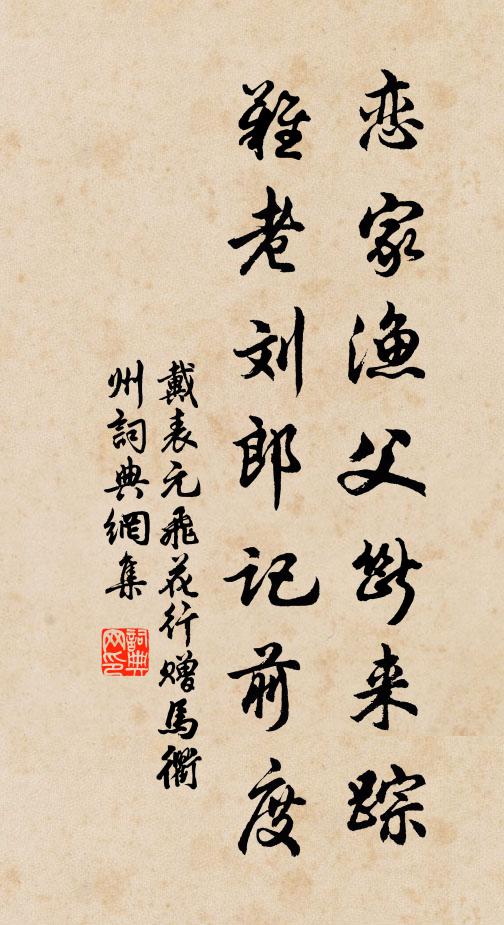 恋家渔父断来踪
难老刘郎记前度
戴表元飛花行赠馬衢
州詞典網集
詞典
网印